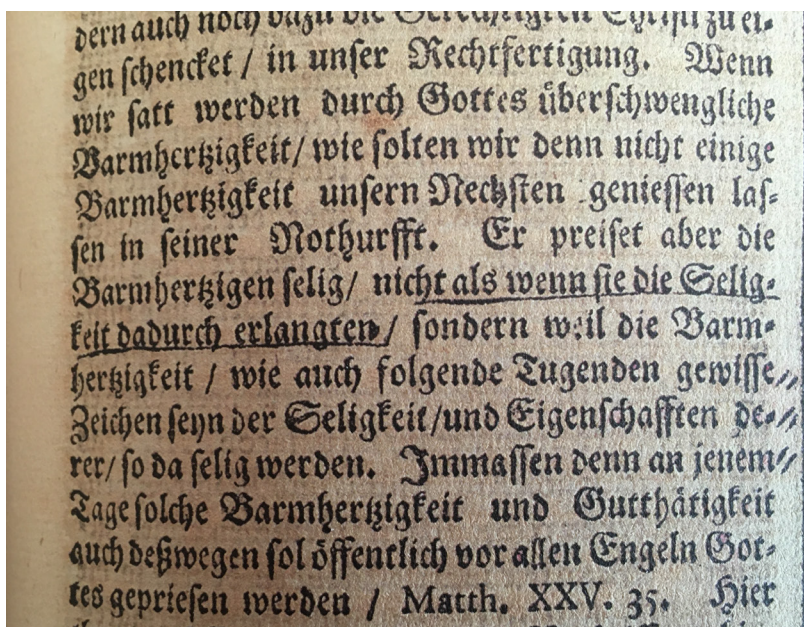 dern auch noch dazu die Gerechtigkeit Christi zu ei-
gen schencket / in unser Rechtfertigung. Wenn
wir satt werden durch Gottes überschwengliche
Barmhertzigkeit/ wie solten wir denn nicht einige
Barmhertzigkeit unsern Nechsten geniessen las-
sen in seiner Nothurfft. Er preiset aber die
Barmhertzigen selig/ nicht als wenn sie die Selig-
keit dadurch erlangten/ sondern weil die Barm-
hertzigkeit / wie auch folgende Tugenden gewisse
Zeichen seyn der Seligkeit/und Eigenschafften de-
rer/ so da selig werden. Immassen denn an jenem
Tage solche Barmhertzigkeit und Gutthätigkeit
auch deßwegen sol öffentlich vor allen Engeln Got-
tes gepriesen werden / Matth. XXV. 35. Hier